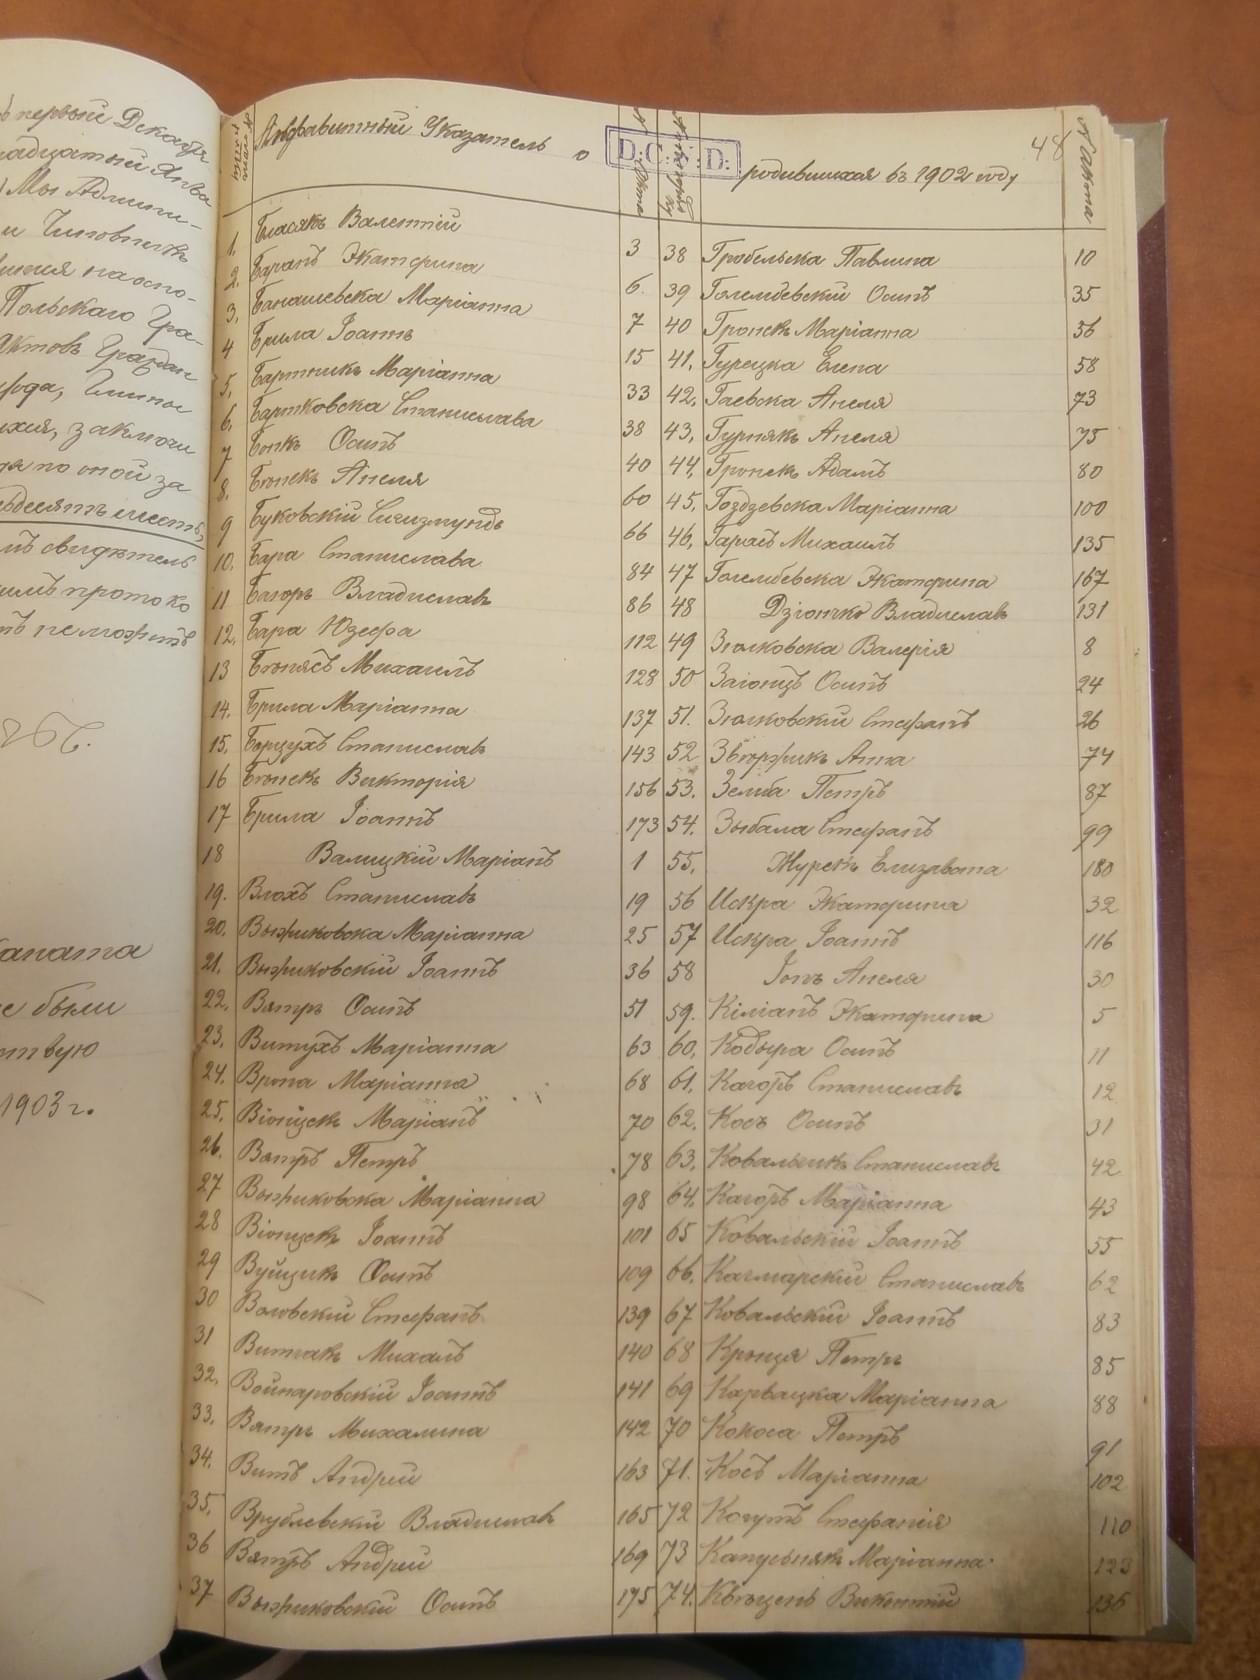 первый Декабря
Мы Админи-
и Чиновникъ
Польскаго Гра-
Актовъ Граждан
рода, Гмины
заключи
я по оной за
десятъ шесть,
свидѣтель
протоко
не можетъ
были
1903 г.
Алфавитный Указатель о родившихся въ 1902 году
D.C.
D.
48
№ Акта
№ Акта
1. Власякъ Валентій 3
2. Баранъ Экатерина 6
3. Банашевска Маріанна 7
4 Брила Іоаннъ 15
5. Бартникъ Маріанна 33
6. Бартковска Станислава 38
7 Бонкъ Осипъ 40
8. Бронекъ Анеля 60
9 Буковскій Сигизмундъ 66
10. Бара Станислава 84
11 Багоръ Владиславъ 86
12. Бара Юзефа 112
13 Михаилъ 128
14. Брила Маріанна 137
15. Борцухъ Станиславъ 143
16 Викторія 156
17 Брила Іоаннъ 173
18 Валицкій Маріанъ 1
19. Влохъ Станиславъ 19
20. Выжиковска Маріанна 25
21. Выжиковскій Іоаннъ 36
22. Вятръ Осипъ 51
23. Витухъ Маріанна 63
24. Врона Маріанна 68
25. Віонцекъ Маріанъ 70
26. Вятръ Петръ 78
27 Выжиковска Маріанна 98
28 Віонцекъ Іоаннъ 101
29 Вуйцикъ Осипъ 109
30 Воловскій Стефанъ 139
31 Витчакъ Михалъ 140
32. Войнаровскій Іоаннъ 141
33. Вятръ Михалина 142
34. Витъ Андрей 163
35. Врублевскій Владиславъ 165
36 Вятръ Андрей 169
37 Выжиковскій Осипъ 175
38 Гробельска Павлина 10
39 Голембевскій Осипъ 35
40 Гронекъ Маріанна 56
41. Гурецка Елена 58
42. Гаевска Анеля 73
43. Гурнякъ Анеля 75
44. Гронекъ Адамъ 80
45. Гоздзевска Маріанна 100
46. Гарасъ Михаилъ 135
47 Голембевска Экатерина 167
48 Дзіопко Владиславъ 131
49 Зіолковска Валерія 8
50 Заіонцъ Осипъ 24
51. Зіолковскій Стефанъ 26
52 Анна 74
53. Зелиба Петръ 87
54. Зыбала Стефанъ 99
55. Журекъ Елизавета 180
56 Искра Экатерина 32
57 Искра Іоаннъ 116
58 Іопъ Анеля 30
59. Киліанъ Экатерина 5
60. Кобыра Осипъ 11
61. Кагоръ Станиславъ 12
62. Косъ Осипъ 31
63. Ковальчикъ Станиславъ 42
64. Кагоръ Маріанна 43
65 Ковальскій Іоаннъ 55
66. Качмарскій Станиславъ 62
67 Ковальскій Іоаннъ 83
68 Петръ 85
69 Карвацка Маріанна 88
70 Кокоса Петръ 91
71. Косъ Маріанна 102
72 Когутъ Стефанія 110
73 Капусьнякъ Маріанна 123
74. Квѣцень Викентій 136